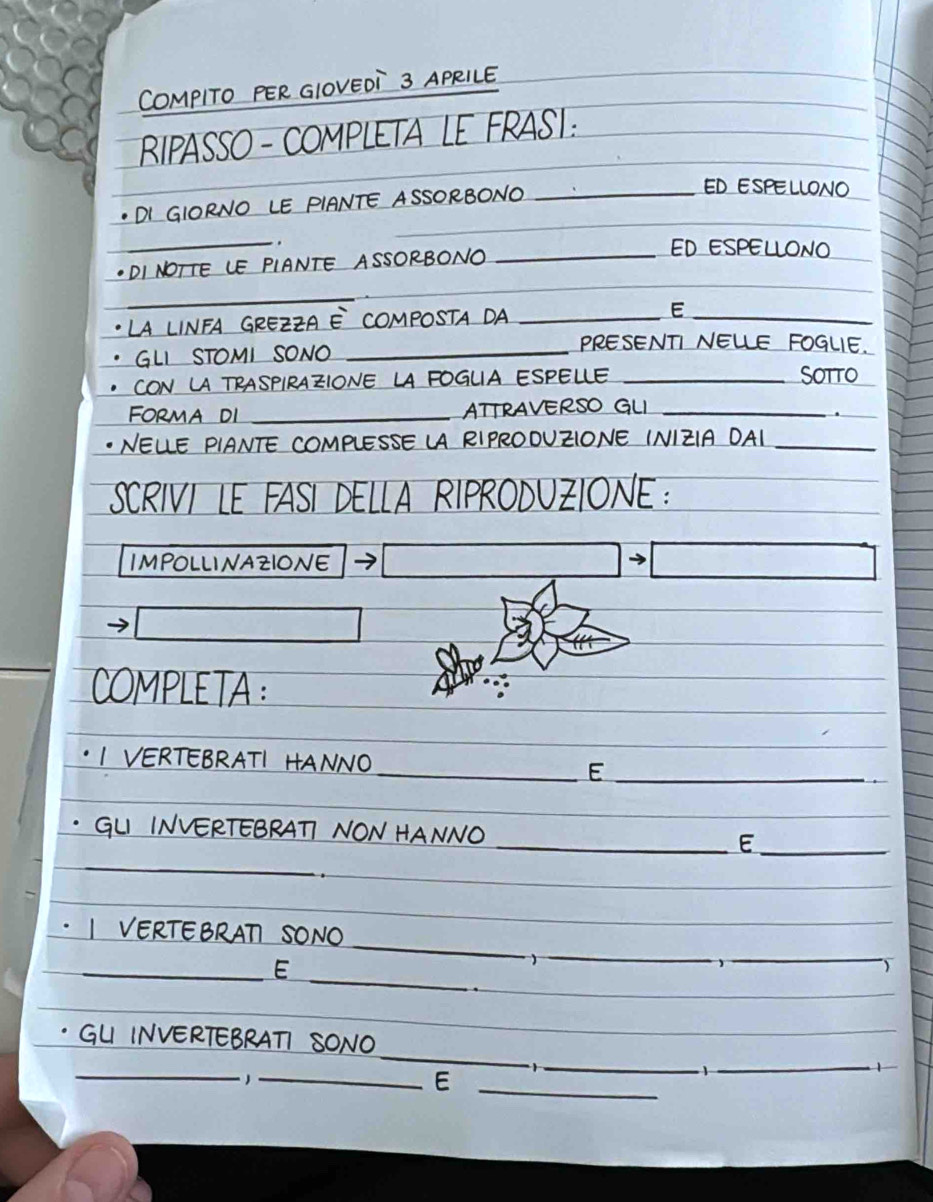 COMPITO PER GIOVEDÌ 3 APRILE
RIPASSO - COMPLETA LE FRASI:
• DI GIORNO LE PIANTE ASSORBONO __________ ED ESPELLONO
__________.
• DI NOTTE LE PIANTE ASSORBONO __________ ED ESPELLONO
__________.
• LA LINFA GREZZA È COMPOSTA DA __________ E __________
• GLI STOMI SONO __________ PRESENTI NELLE FOGLIE.
• CON LA TRASPIRAZIONE LA FOGLIA ESPELLE __________ SOTTO
FORMA DI __________ ATTRAVERSO GLI __________.
• NELLE PIANTE COMPLESSE LA RIPRODUZIONE INIZIA DAI __________
SCRIVI LE FASI DELLA RIPRODUZIONE:
IMPOLLINAZIONE → →
→
COMPLETA:
• I VERTEBRATI HANNO __________ E __________.
• GLI INVERTEBRATI NON HANNO __________ E __________
__________.
• I VERTEBRATI SONO __________, __________, __________,
__________ E __________.
• GLI INVERTEBRATI SONO __________, __________, __________,
__________, __________ E __________